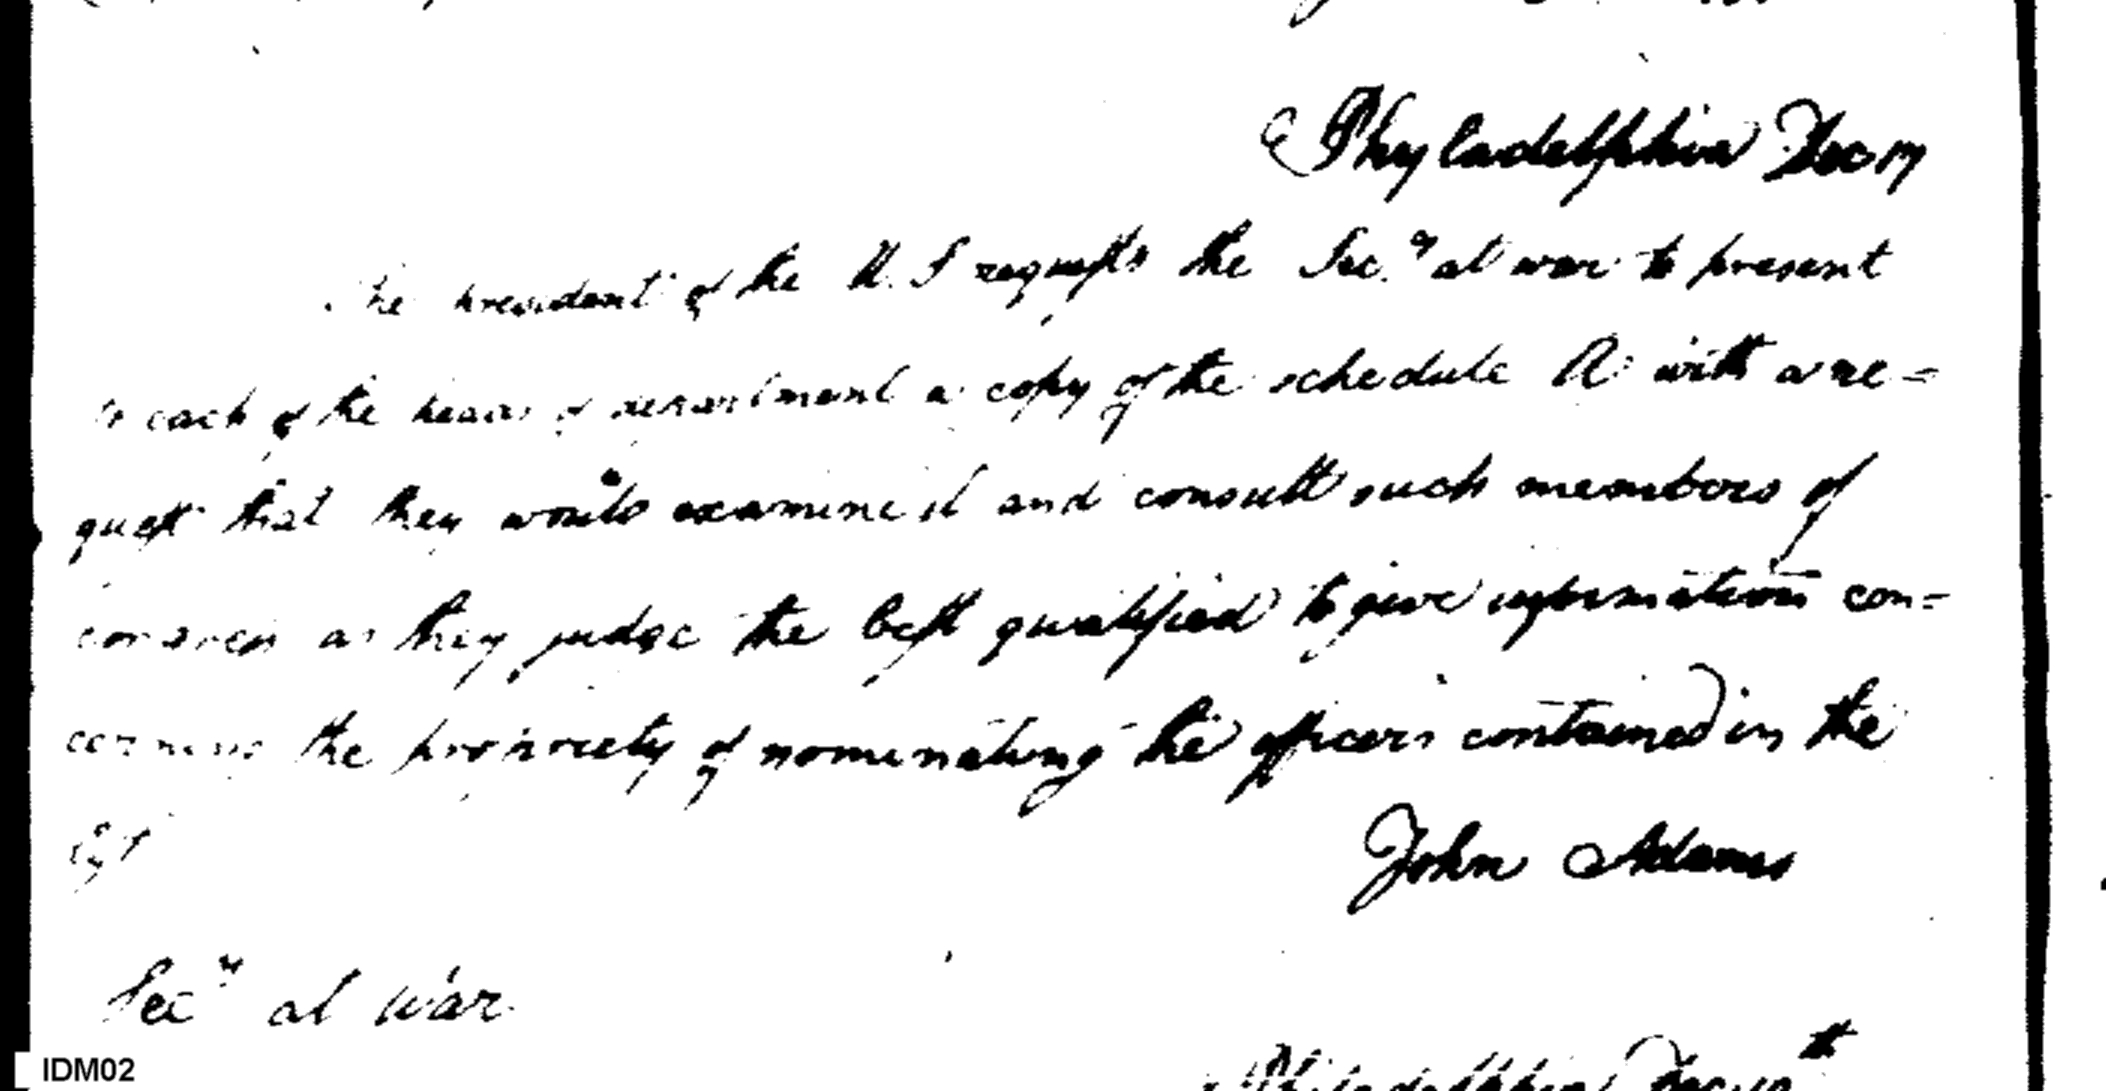 Phyladelphia Dec 17
The president of the U. S requests the Secy at war to present
to each of the heads of department a copy of the schedule A with a re=
quest that they would examine it and consult such members of
congress as they judge the best qualified to give information con=
cerning the propriety of nominating the officers contained in the
John Adams
Secy at war
IDM02
Philadelphia Dec